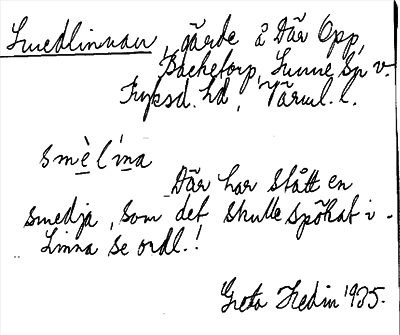 Smedlinnan, gärde å Där Opp,
Backetorp, Sunne Sn v.
Fryksd. hd, Värml. l.
smèlína
Där har stått en
smedja, som det skulle spökat i -
Linna se ordl.!
Greta Hedin 1925.